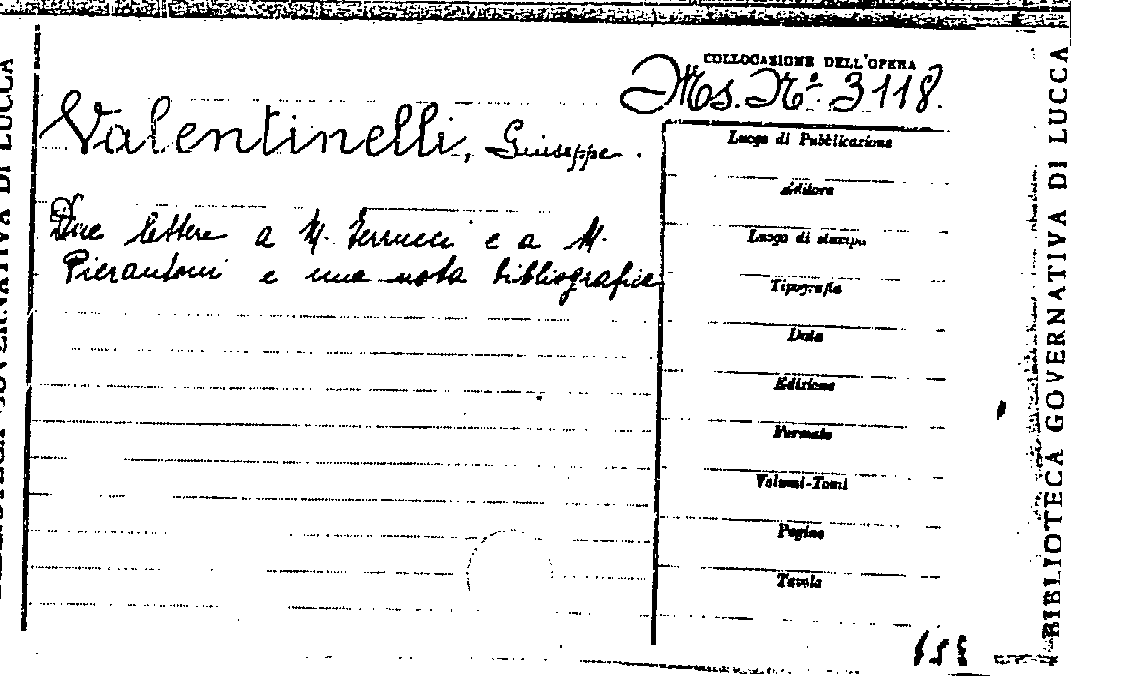 COLLOCAZIONE DELL'OPERA
Ms. Nº 3118.
Valentinelli, Giuseppe.
Due lettere a M. Ferrucci e a M.
Pierantoni e una nota bibliografica
Luogo di Pubblicazione
Editore
Luogo di stampa
Tipografia
Data
Edizione
Formato
Volumi-Tomi
Pagine
Tavole
BIBLIOTECA GOVERNATIVA DI LUCCA